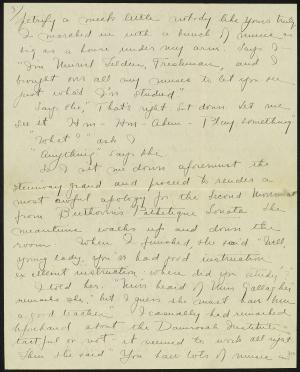 3/
petrify a meek little nobody like yours truly
I marched in with a bunch of music as
big as a house under my arm. Says I
"I'm Muriel Felder, Freshman, and I
brought over all my music to let you see
just what I'm studied"
Says she, "That's right. Sit down. Let me
see it. Hm - Hm - Ahem - Play something"
"What?" ask I
"Anything" says she
So I set me down aforemost the
Steinway grand and proceed to render a
most awful apology for the Second Movement
from Beethoven's Pathetique Sonata. She
meantime walks up and down the
room. When I finished, she said "Well,
young lady, you've had good instruction
excellent instruction. where did you study."
I told her. "Never heard of Miss Gallagher
remarks she, "but I guess she must have been
a good teacher" I casually had remarked
beforehand about the Damrosch Institute -
tactful or not, it seemed to work all right.
Then she said "You have lots of music -